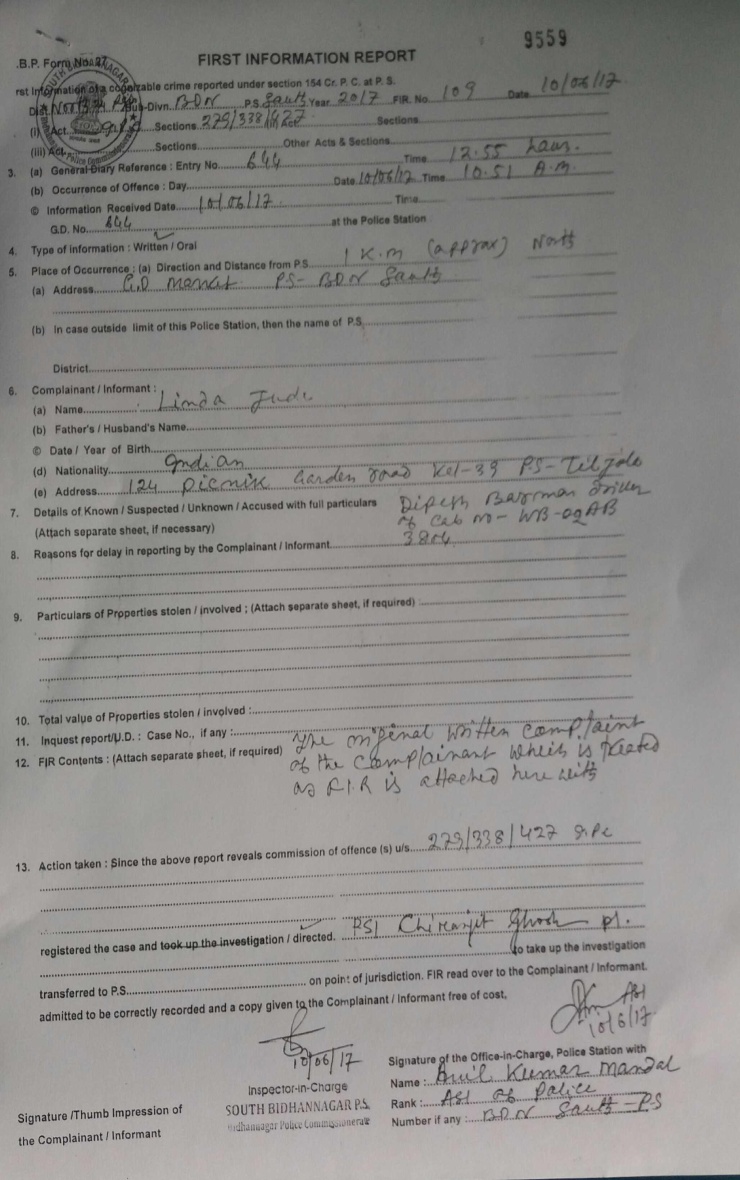 9559
.B.P. Form No. 27
FIRST INFORMATION REPORT
rst Information of a cognizable crime reported under section 154 Cr. P. C. at P. S.
Sub-Divn. BDN P.S. South Year 2017 FIR. No. 109 Date 10/06/17
(i) Act Sections 279/338/427 Sections
(iii) Act Sections Other Acts & Sections
3. (a) General Diary Reference : Entry No. 644 Time 12.55 hours.
(b) Occurrence of Offence : Day Date 10/06/17 Time 10.51 A.M.
© Information Received Date 10/06/17. Time
G.D. No. 644 at the Police Station
4. Type of information : Written / Oral
5. Place of Occurrence : (a) Direction and Distance from P.S. 1 K.m (approx) North
(a) Address G.D Market PS- BDN South
(b) In case outside limit of this Police Station, then the name of P.S.
District
6. Complainant / Informant :
(a) Name Linda Jude
(b) Father's / Husband's Name
© Date / Year of Birth
(d) Nationality Indian
(e) Address 124 Picnik Garden road Kol-39 PS- Tiljala
7. Details of Known / Suspected / Unknown / Accused with full particulars Dipesh Barman driver
(Attach separate sheet, if necessary) of Cab no- WB-02AB
3804
8. Reasons for delay in reporting by the Complainant / Informant
9. Particulars of Properties stolen / involved ; (Attach separate sheet, if required) :
10. Total value of Properties stolen / involved :
11. Inquest report/U.D. : Case No., if any :
12. FIR Contents : (Attach separate sheet, if required) The original written complaint
of the complainant which is treated
as F.I.R is attached here with
13. Action taken : Since the above report reveals commission of offence (s) u/s 279/338/427 IPC
registered the case and took up the investigation / directed. PSI Chiranjit Ghosh pl.
to take up the investigation
transferred to P.S. on point of jurisdiction. FIR read over to the Complainant / Informant.
admitted to be correctly recorded and a copy given to the Complainant / Informant free of cost,
ASI
10/6/17
10/06/17
Signature of the Office-in-Charge, Police Station with
Inspector-in-Charge
SOUTH BIDHANNAGAR P.S.
Bidhannagar Police Commissionerate
Name : Anil Kumar Mandal
Rank : ASI of Police
Number if any : BDN South - PS
Signature /Thumb Impression of
the Complainant / Informant